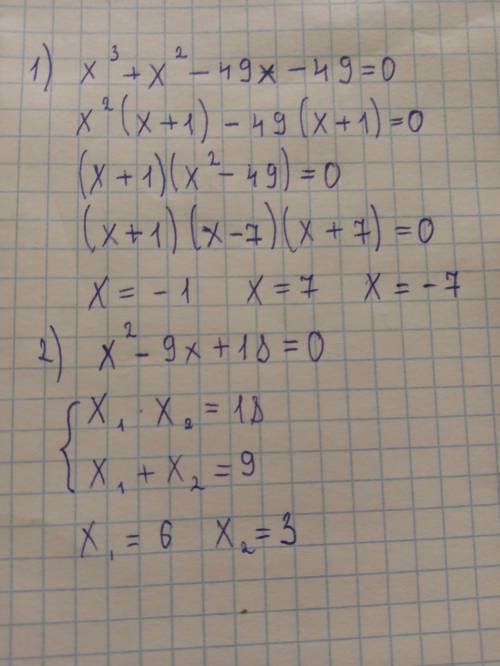 1) x³ + x² - 49x - 49 = 0
x²(x+1) - 49(x+1) = 0
(x+1)(x² - 49) = 0
(x+1)(x-7)(x+7) = 0
x = -1 x = 7 x = -7
2) x² - 9x + 18 = 0
{ x₁ · x₂ = 18
x₁ + x₂ = 9
x₁ = 6 x₂ = 3